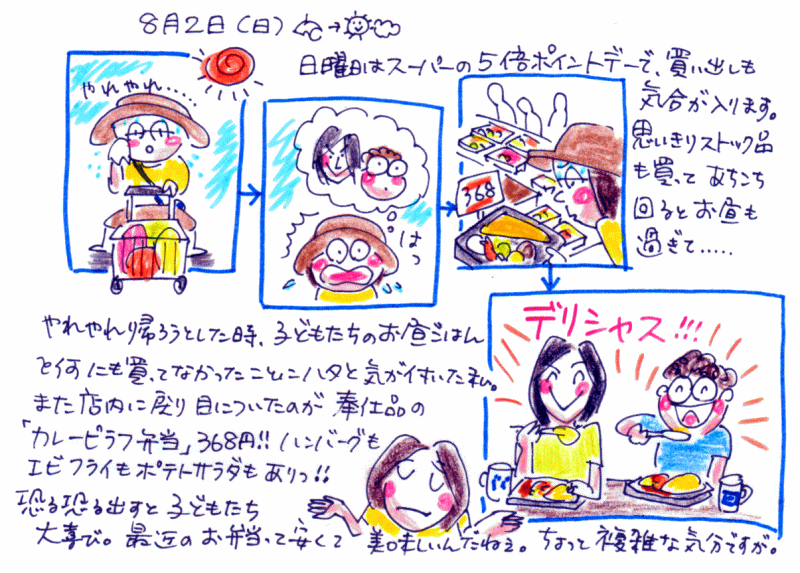 8月2日(日)
日曜日はスーパーの5倍ポイントデーで、買い出しも
気合が入ります。
思いきりストック品
も買って あちこち
回るとお昼も
過ぎて.....
やれやれ.....
はっ
368
デリシャス!!!
やれやれ帰ろうとした時、子どもたちのお昼ごはん
を何にも買ってなかったことにハタと気が付いた私。
また店内に戻り目についたのが 奉仕品の
「カレーピラフ弁当」368円!! ハンバーグも
エビフライもポテトサラダもありっ!!
恐る恐る出すと子どもたち
大喜び。最近のお弁当って安くて 美味しいんだねぇ。ちょっと複雑な気分ですが。